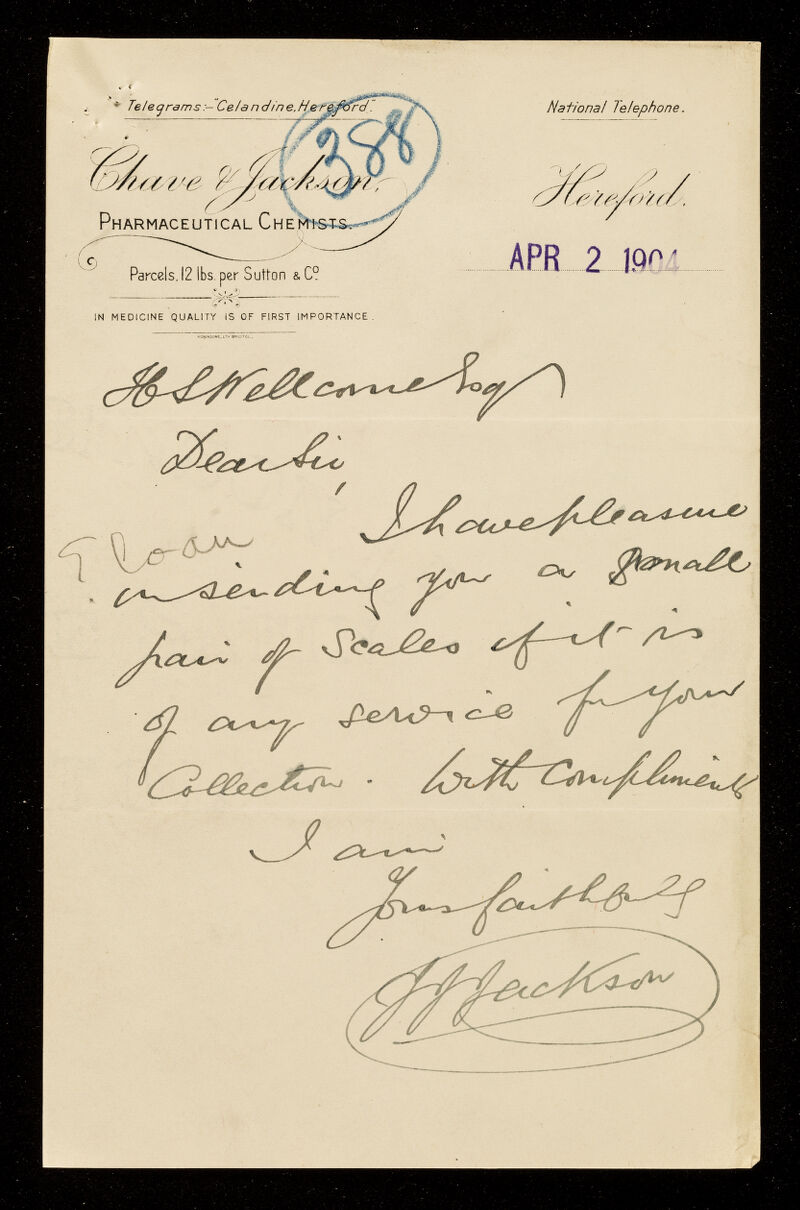 Telegrams:- "Celandine, Hereford."
National Telephone.
388
Chave & Jackson,
Hereford.
PHARMACEUTICAL CHEMISTS.
APR 2 1904
Parcels, 12 lbs. per Sutton & Co.
IN MEDICINE QUALITY IS OF FIRST IMPORTANCE.
H S Wellcome Esq
Dear Sir,
I have pleasure
? Loan
in sending you a small
pair of Scales if it is
of any service for your
Collection. With Compliments
I am
Yours faithfully
Jackson